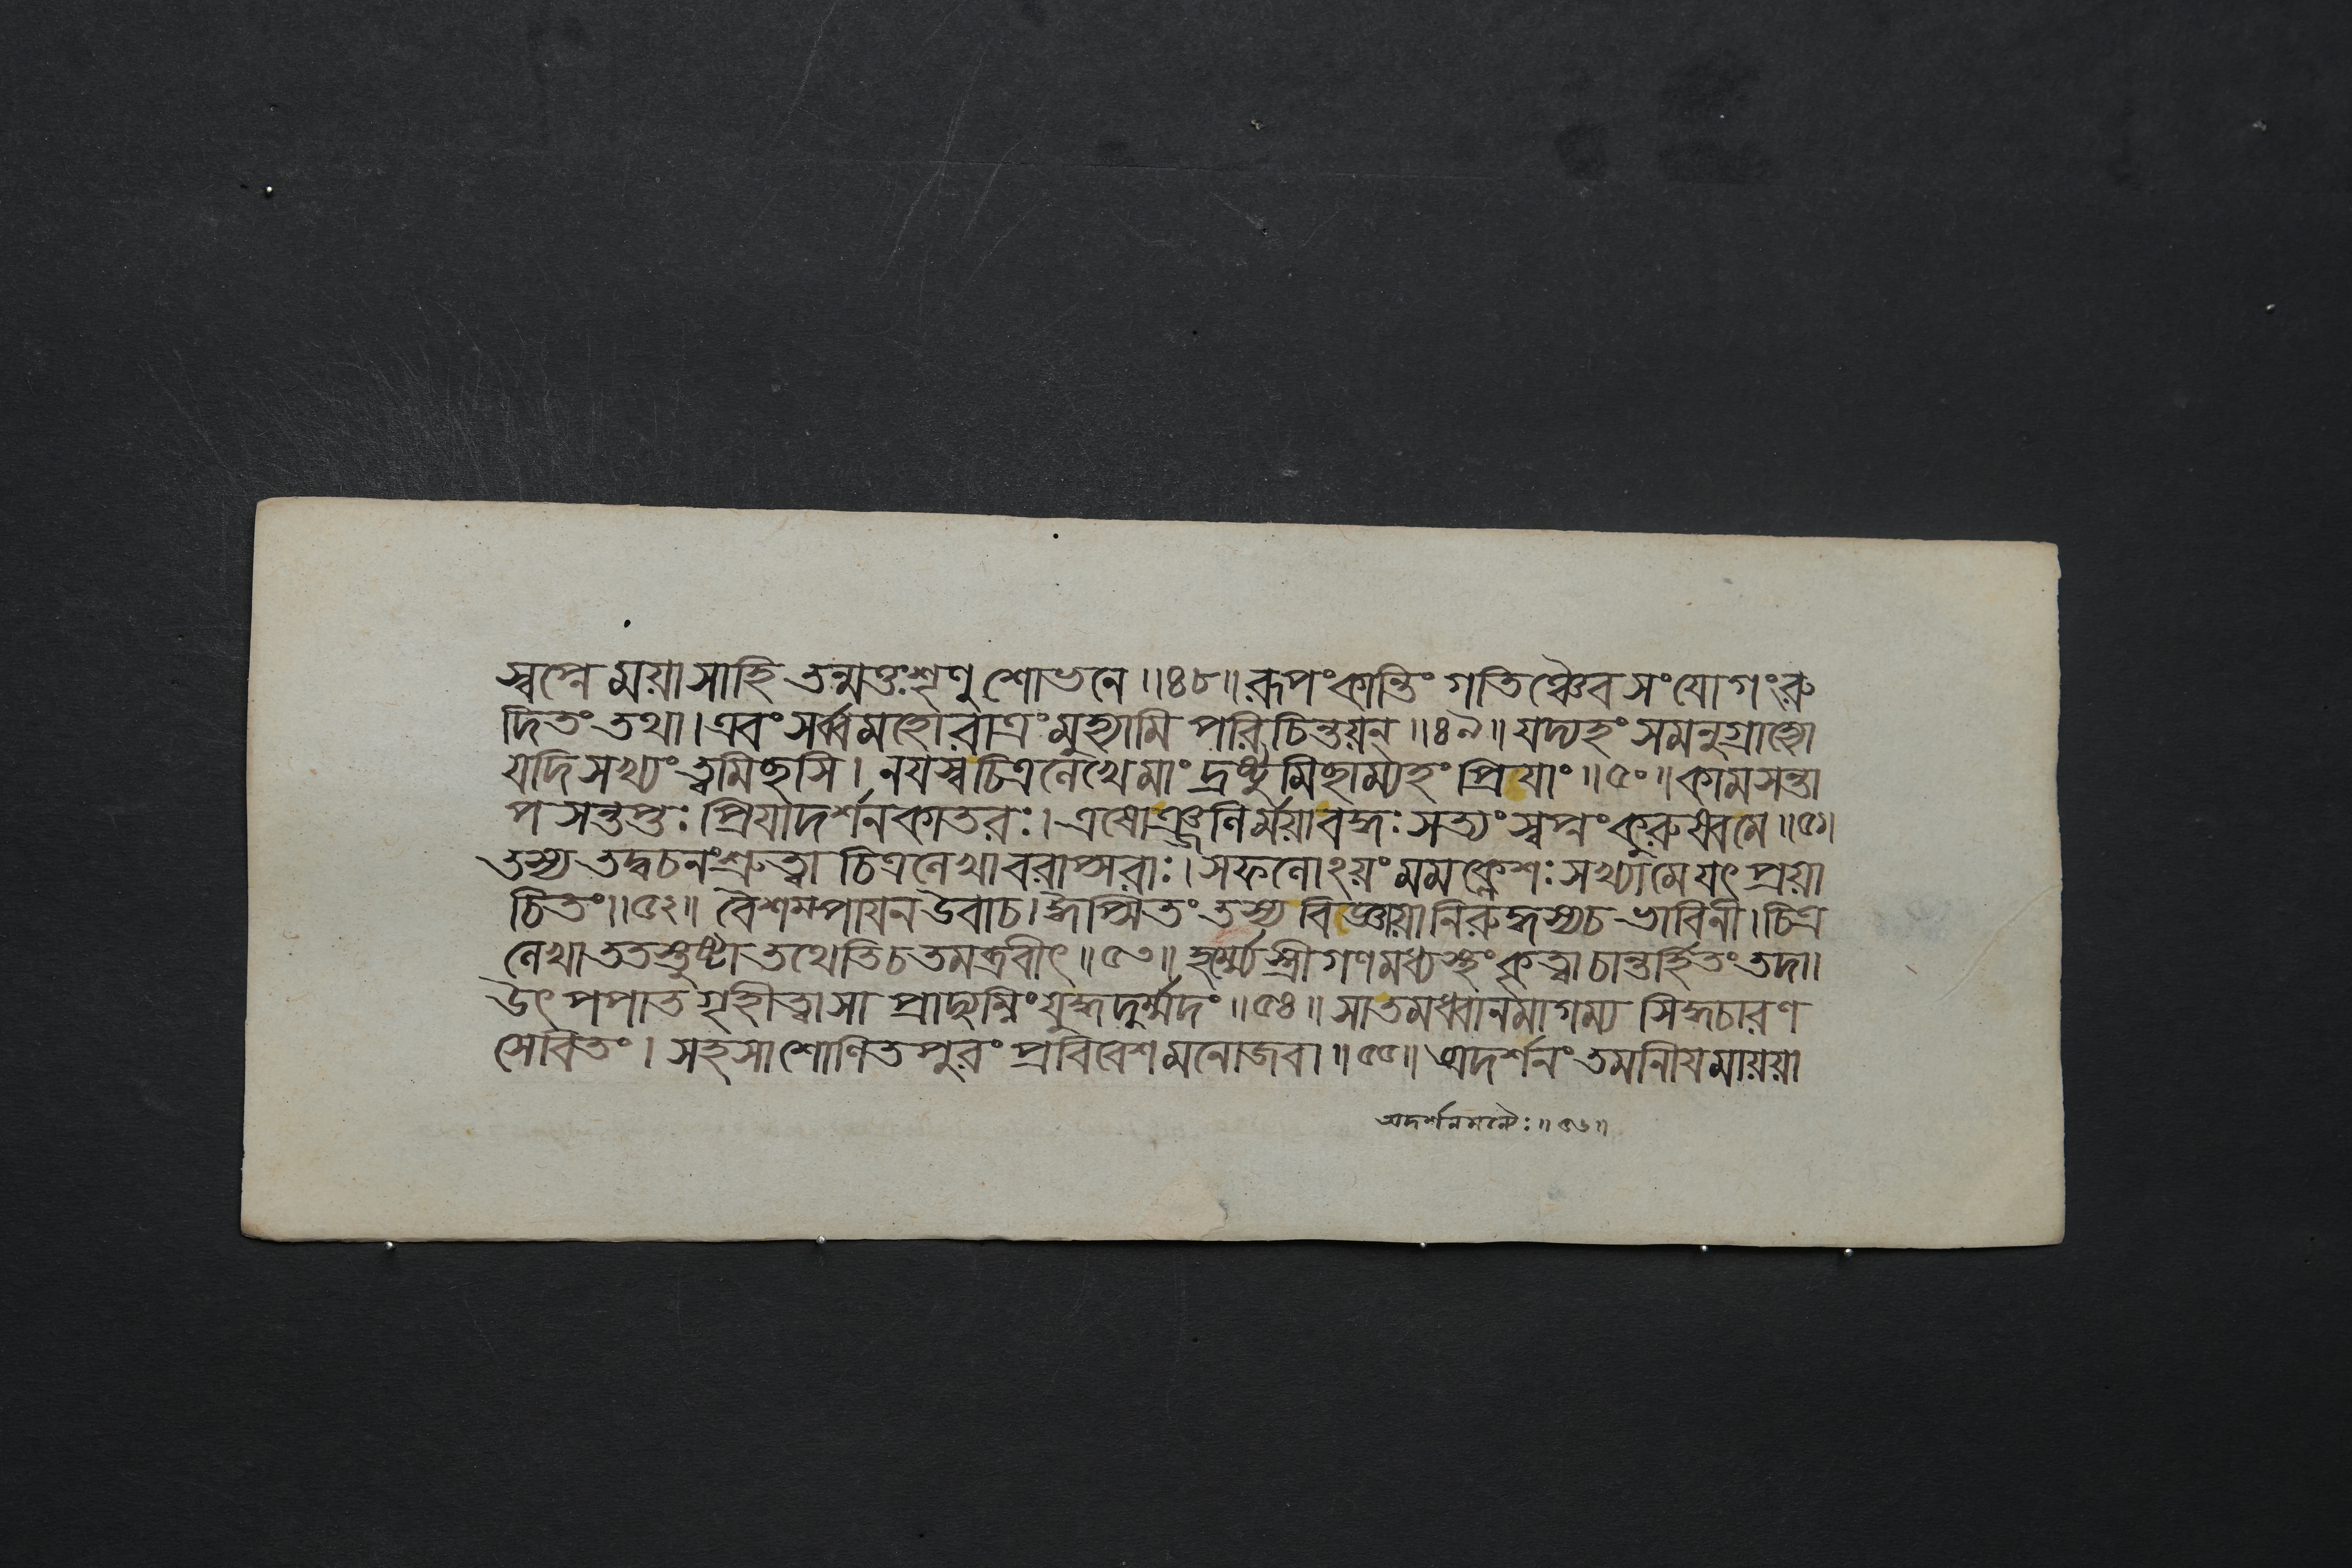 স্বপ্নে ময়া সা হি তন্মত্তঃ শৃণু শোভনে ॥ ৪৮ ॥ রূপং কান্তিং গতিঞ্চৈব সংযোগং রু
দিতং তথা । এবং সর্ব্বমহোরাত্রং মুহ্যামি পরিচিন্তয়ন্ ॥ ৪৯ ॥ যদ্যহং সমনুগ্রাহ্যো
যদি সখ্যং ত্বমিচ্ছসি । নযস্ব চিত্রলেখে মাং দ্রষ্টুমিচ্ছাম্যহং প্রিযাং ॥ ৫০ ॥ কামসন্তা
পসন্তপ্তঃ প্রিযাদর্শনকাতরঃ । এষোঞ্জলির্ম্ময়া বদ্ধঃ সত্যং স্বপ্নং কুরুষ্ব মে ॥ ৫১ ॥
তস্য তদ্বচনং শ্রুত্বা চিত্রলেখা বরাপ্সরাঃ । সফলোঽয়ং মম ক্লেশঃ সখ্যা মে যৎ প্রয়া
চিতং ॥ ৫২ ॥ বৈশম্পাযন উবাচ । ঈপ্সিতং তস্য বিজ্ঞায়ানিরুদ্ধস্য চ ভাবিনী । চিত্র
লেখা ততস্তুষ্টা তথেতি চ তমব্রবীৎ ॥ ৫৩ ॥ হর্ম্ম্যে স্ত্রীগণমধ্যস্থং কৃত্বা চান্তর্হিতং তদা ।
উৎপপাত গৃহীত্বা সা প্রাদ্যুম্নিং যুদ্ধদুর্ম্মদং ॥ ৫৪ ॥ সা তমধ্বানমাগম্য সিদ্ধচারণ
সেবিতং । সহসা শোণিতপুরং প্রবিবেশ মনোজবা ॥ ৫৫ ॥ অদর্শনং তমানীয মায়য়া
অদর্শনমন্যৈঃ ॥ ৫৬ ॥